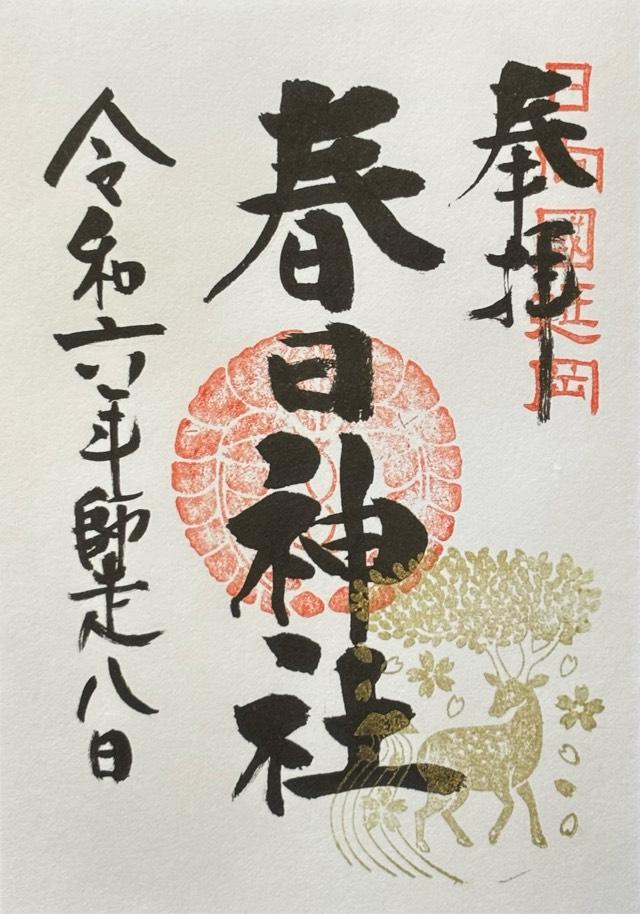 日向國延岡
奉拝
春日神社
令和六年師走八日